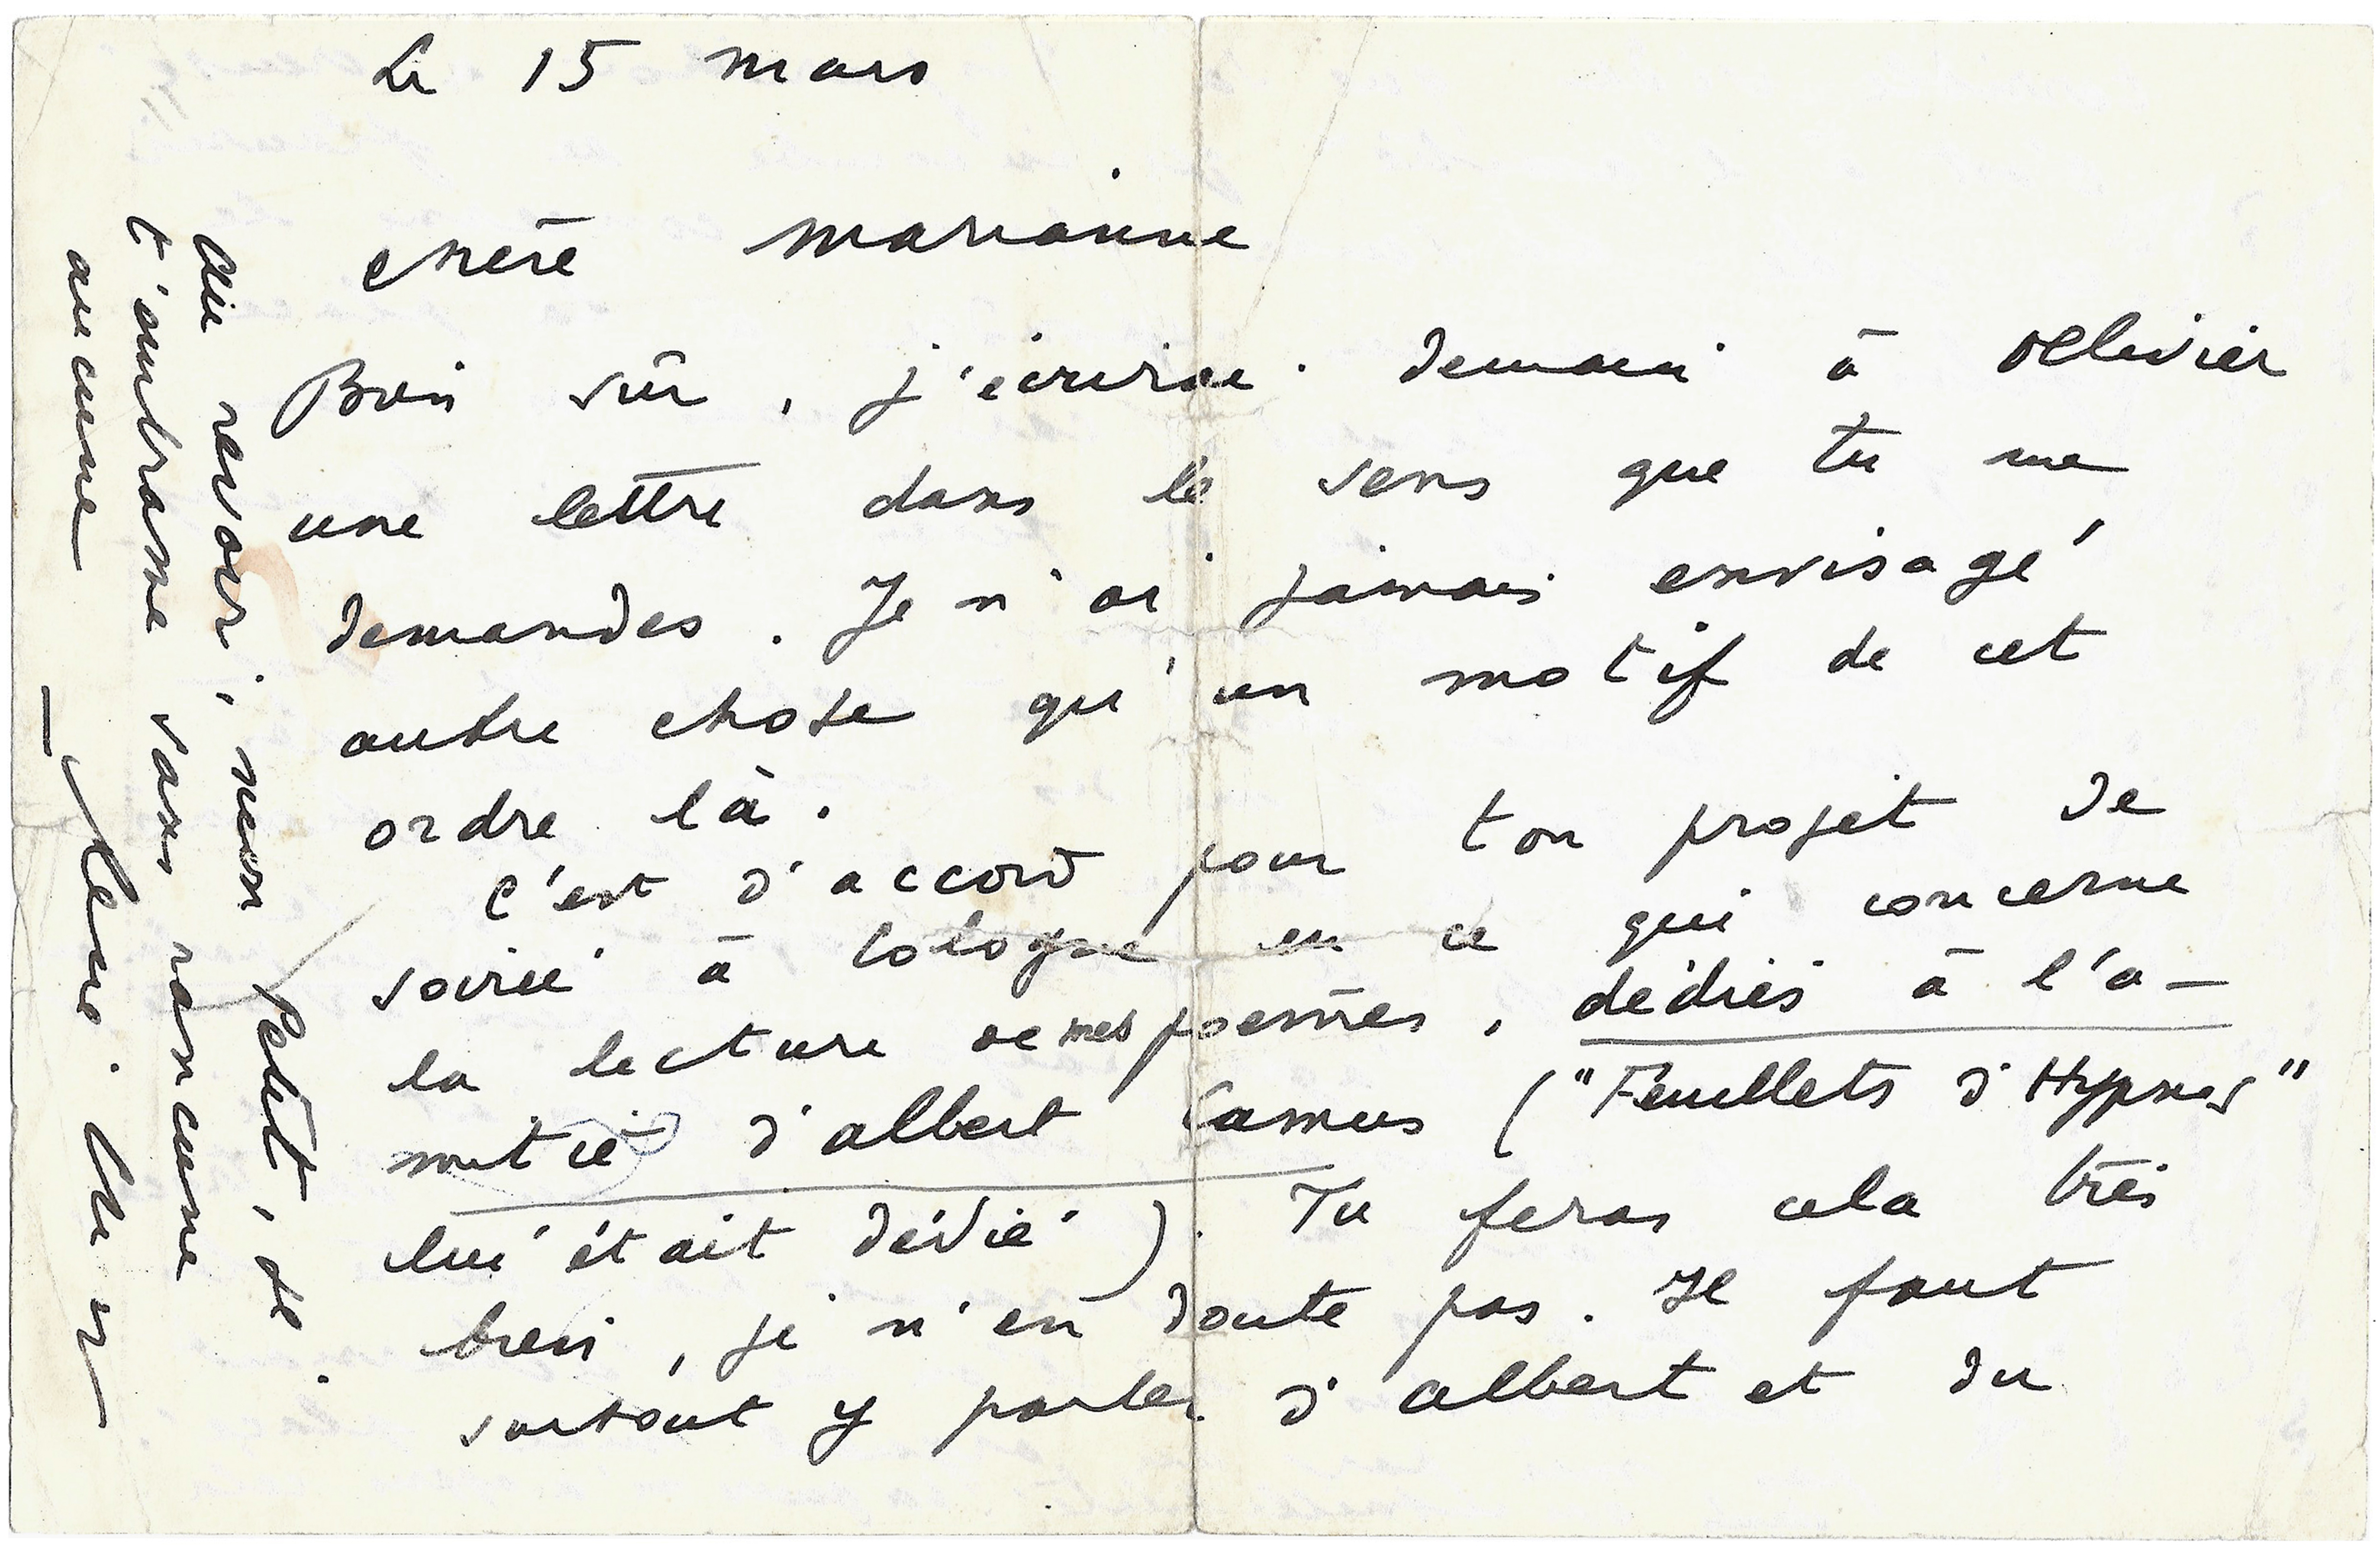 Le 15 mars
chère Marianne
Bien sûr, j'écrirai demain à Ollivier
une lettre dans le sens que tu me
demandes. Je n'ai jamais envisagé
autre chose qu'un motif de cet
ordre là.
C'est d'accord pour ton projet de
soirée à Cologne en ce qui concerne
la lecture de mes poèmes, dédiés à l'a-
mitié d'Albert Camus ("Feuillets d'Hypnos"
lui était dédié). Tu feras cela très
bien, je n'en doute pas. Il faut
surtout y parler d'Albert et du
Au revoir, mon petit, je
t'embrasse sans rancune
aucune